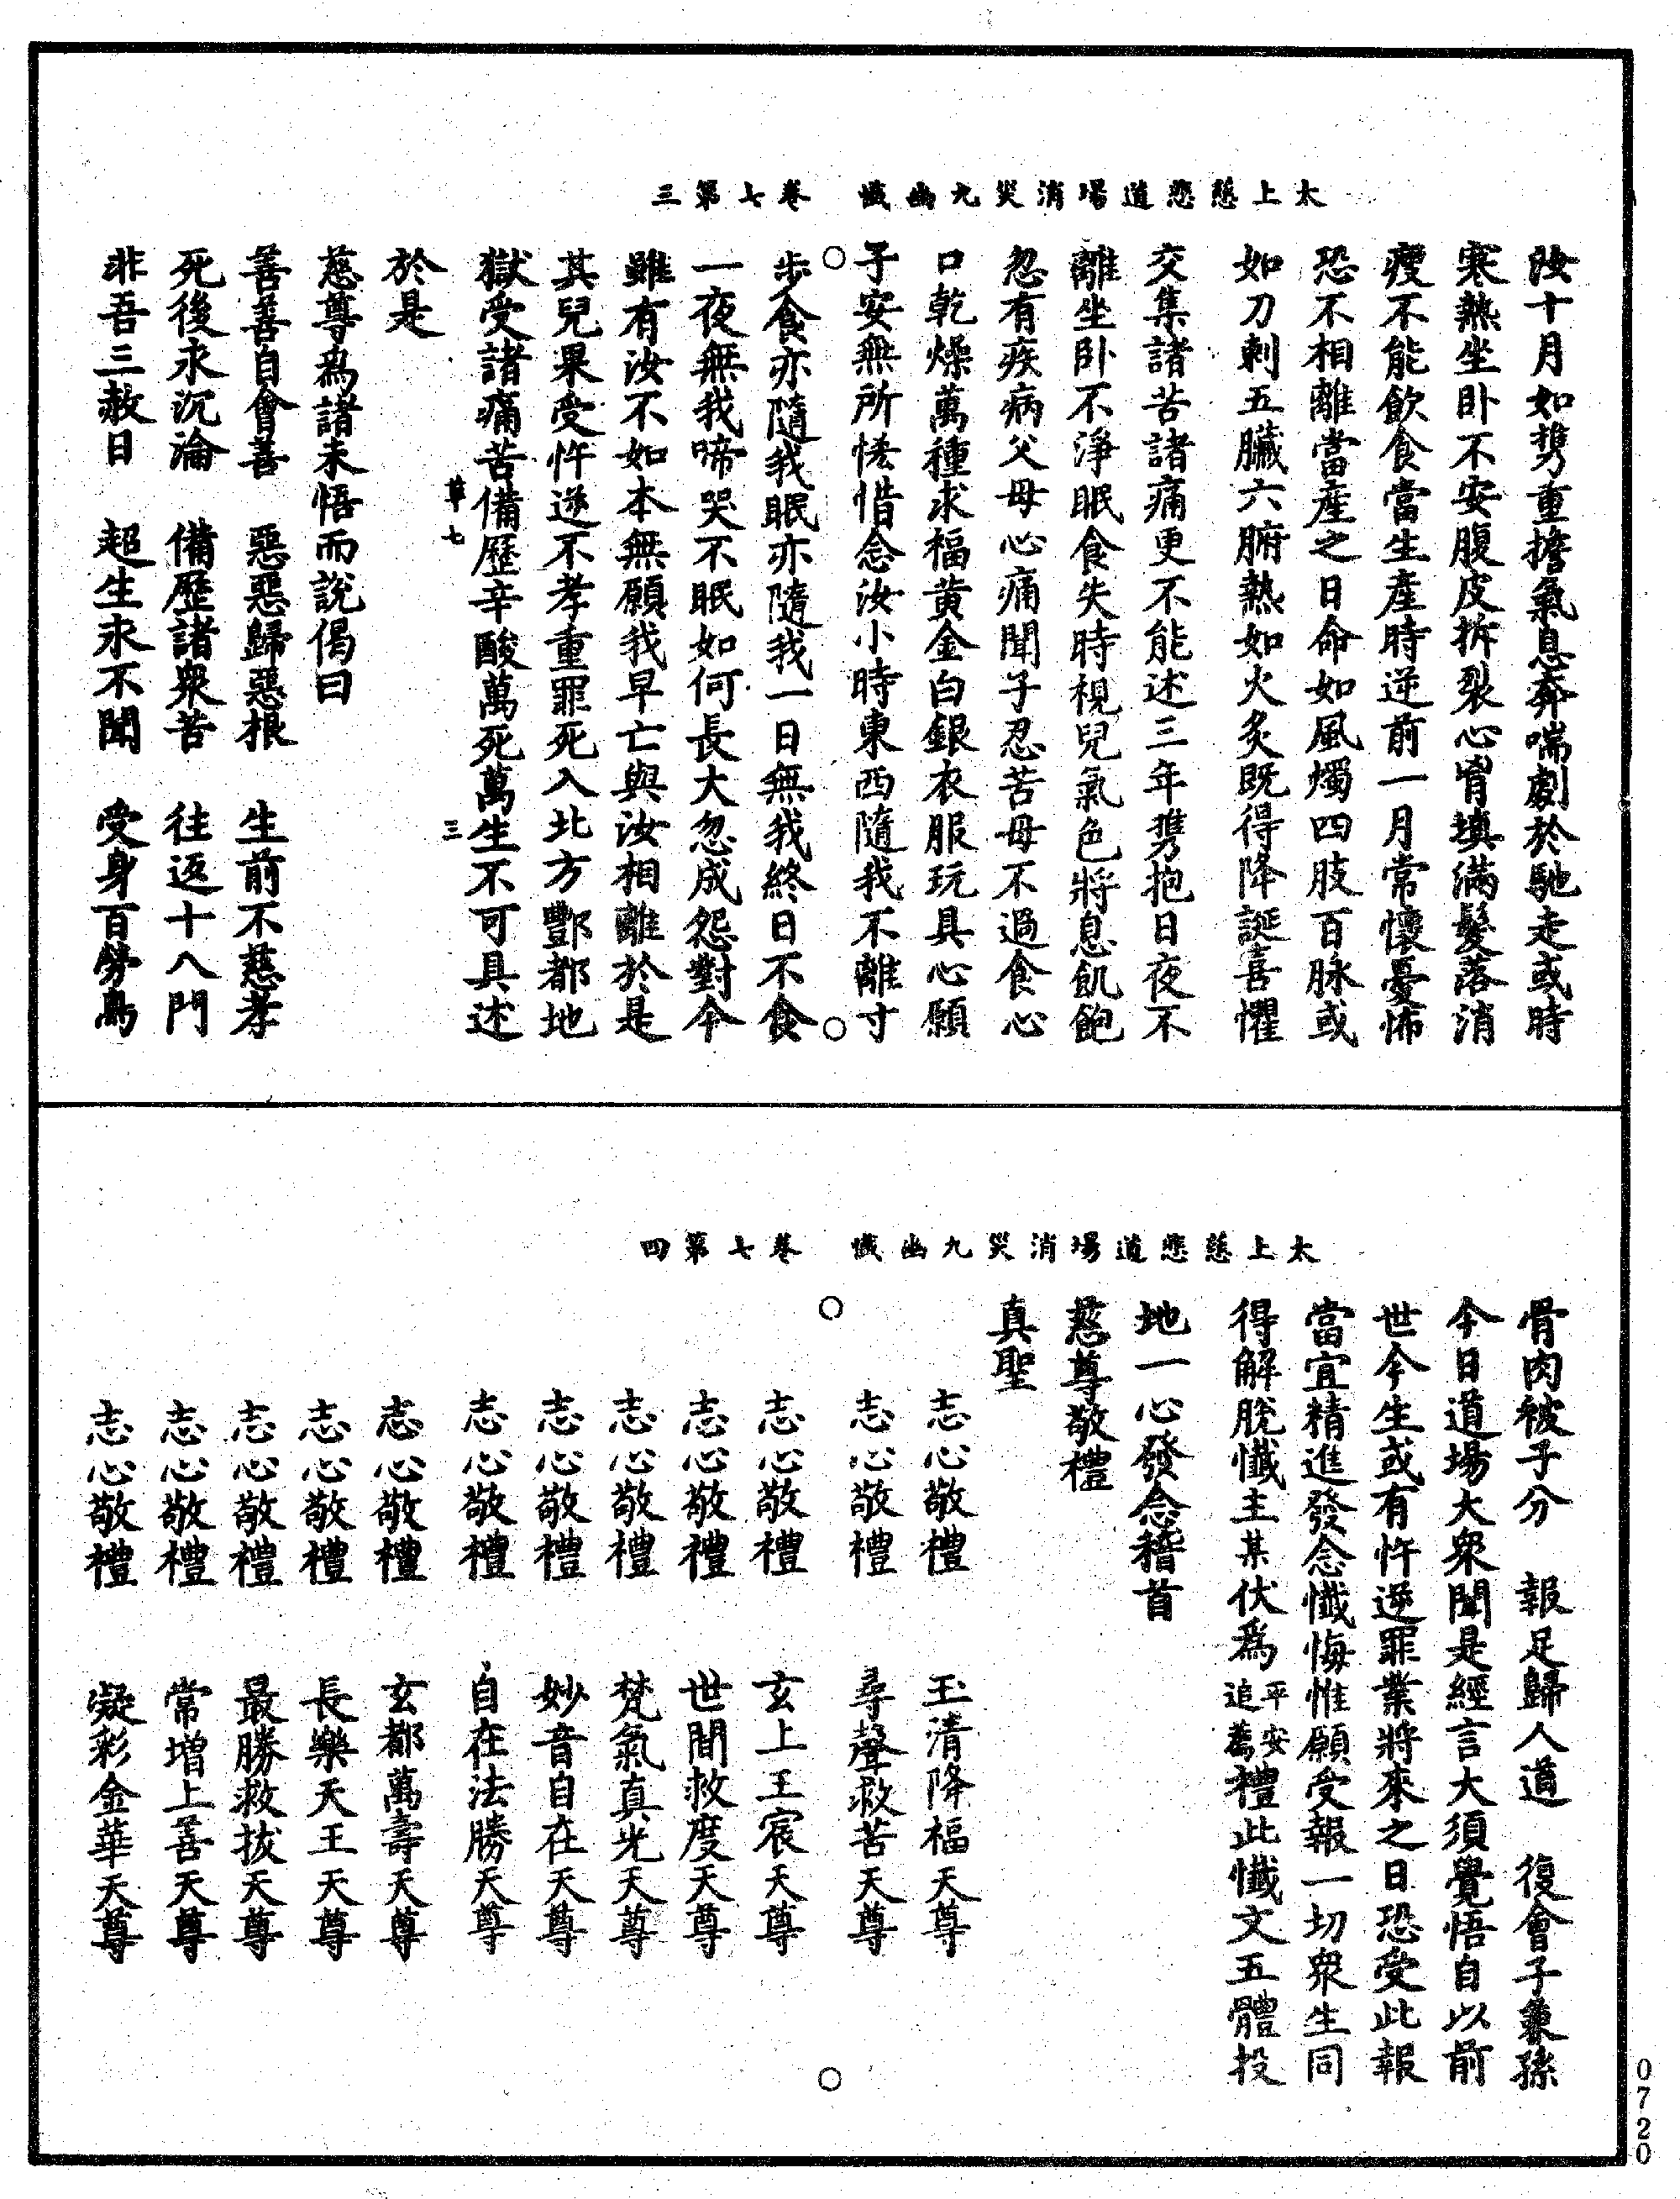 太上慈悲道場消災九幽懺　卷七第三
汝十月如㩦重擔氣息奔喘劇於馳走或時
寒熱坐卧不安腹皮拆裂心胷填滿髮落消
瘦不能飲食當生產時逆前一月常懷憂怖
恐不相離當產之日命如風燭四肢百脉或
如刀刺五臟六腑熱如火炙既得降誕喜懼
交集諸苦諸痛更不能述三年㩦抱日夜不
離坐卧不淨眠食失時視兒氣色將息飢飽
忽有疾病父母心痛聞子忍苦母不過食心
口乾燥萬種求福黃金白銀衣服玩具心願
子安無所恡惜念汝小時東西隨我不離寸
步食亦隨我眠亦隨我一日無我終日不食
一夜無我啼哭不眠如何長大忽成怨對今
雖有汝不如本無願我早亡與汝相離於是
其兒果受忤逆不孝重罪死入北方酆都地
獄受諸痛苦備歷辛酸萬死萬生不可具述
華七　三
於是
慈尊為諸未悟而說偈曰
善善自會善　惡惡歸惡根　生前不慈孝
死後永沉淪　備歷諸衆苦　往返十八門
非吾三赦日　超生永不聞　受身百勞鳥
太上慈悲道場消災九幽懺　卷七第四
骨肉被子分　報足歸人道　復會子兼孫
今日道場大衆聞是經言大須覺悟自以前
世今生或有忤逆罪業將來之日恐受此報
當宜精進發念懺悔惟願受報一切衆生同
得解脫懺主某伏為平安追薦禮此懺文五體投
地一心發念稽首
慈尊敬禮
真聖
志心敬禮　玉清降福天尊
志心敬禮　尋聲救苦天尊
志心敬禮　玄上玉宸天尊
志心敬禮　世間救度天尊
志心敬禮　梵氣真光天尊
志心敬禮　妙音自在天尊
志心敬禮　自在法勝天尊
志心敬禮　玄都萬壽天尊
志心敬禮　長樂天王天尊
志心敬禮　最勝救拔天尊
志心敬禮　常增上善天尊
志心敬禮　凝彩金華天尊
0720